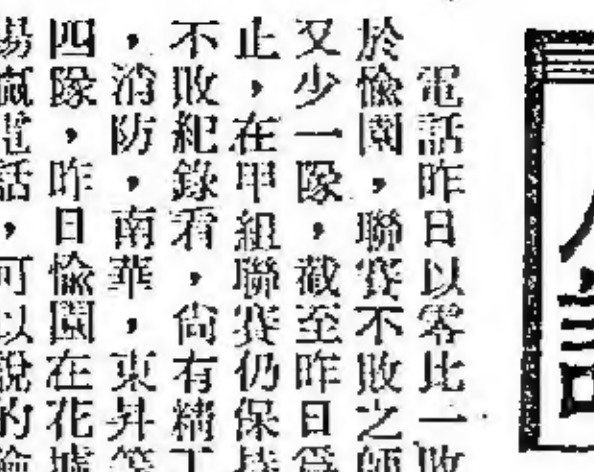 電話昨日以零比一敗
於愉園,聯賽不敗之師
又少一隊,截至昨日爲
止,在甲組聯賽仍保持
不敗紀錄者,尚有精工
,消防,南華,東昇等
四隊,昨日愉園在花墟
場贏電話,可以說的